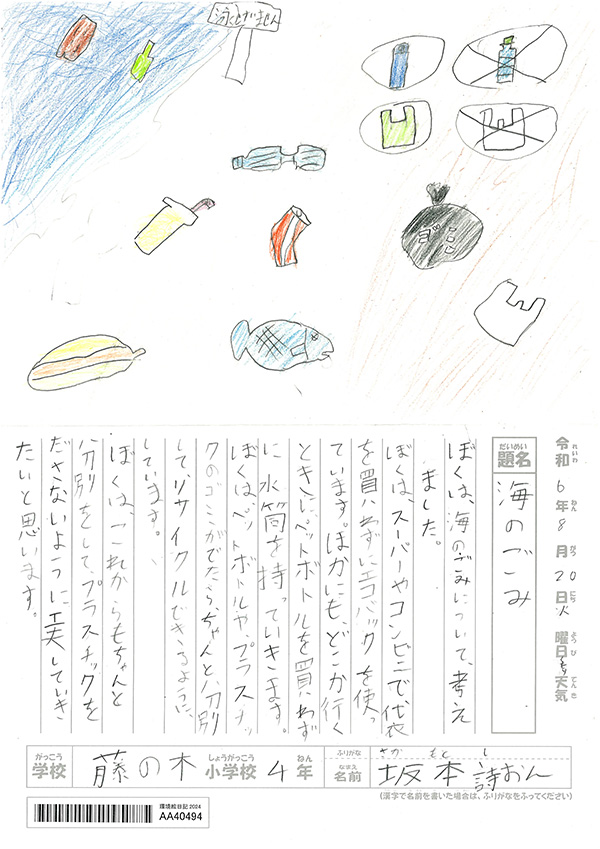 泳くとげません
ゴミ
令和6年8月20日火曜日 天気
れいわ ねん がつ にち ようび てんき
だいめい
題名 海のごみ
ぼくは、海のごみについて、考え
ました。
ぼくは、スーパーやコンビニで代衣
を買いわずにエコバックを使っ
ています。ほかにも、どこか行く
ときに、ペットボトルを買いわず
に水筒を持っていきます。
ぼくは、ペットボトルや、プラスチッ
クのゴミがでたら、ちゃんと分別
して、リサイクルできるように、
しています。
ぼくは、これからもちゃんと
分別をして、プラスチックを
ださないように工夫していき
たいと思います。
がっこう しょうがっこう ねん ふりがな さか もと し
学校 藤の木 小学校 4年 なまえ 名前 坂本詩おん
(漢字で名前を書いた場合は、ふりがなをふってください)
環境絵日記 2024
AA40494